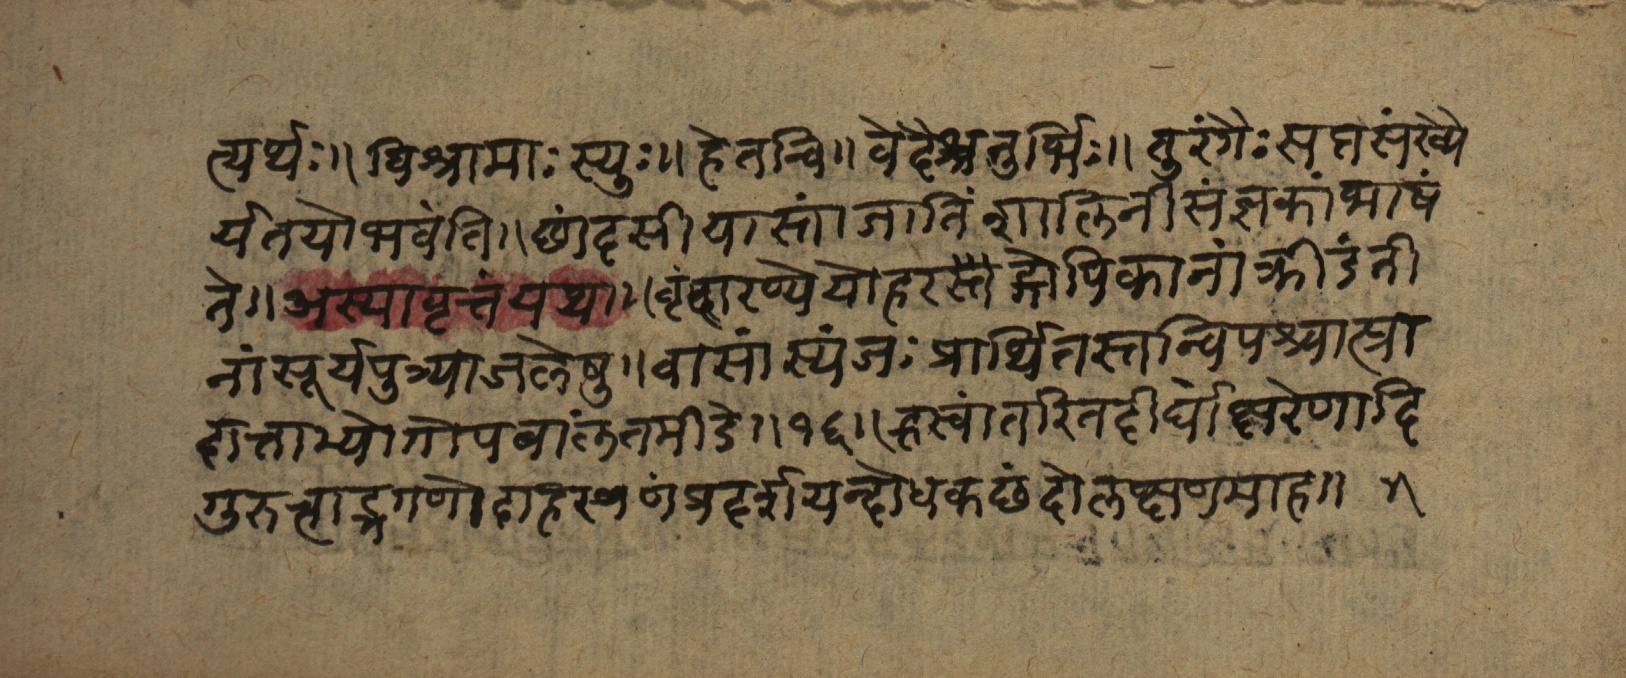 त्यर्थः॥ विश्रामाः स्युः॥ हे तन्वि॥ वेदैश्चतुर्भिः॥ तुरंगैः सप्तसंख्यै
र्यतयो भवंति॥ छांदसीया सां जातिं शालिनीसंज्ञकां भाषं
ते॥ अस्यावृत्तं यथा॥ वृंदारण्ये योहरत्तै गोपिकानां क्रीडंती
नां सूर्यपुत्र्या जलेषु॥ वासां स्यंजः प्रार्थितस्तन्वि पश्चात्प्रा
दात्ताभ्यो गोपबालं तमीडे॥ १६॥ ह्रस्वांतरितदीर्घाक्षरेणादि
गुरुत्वाद्भगणोदाहरणं प्रदर्शयन्दोधकछंदोलक्षणमाह॥